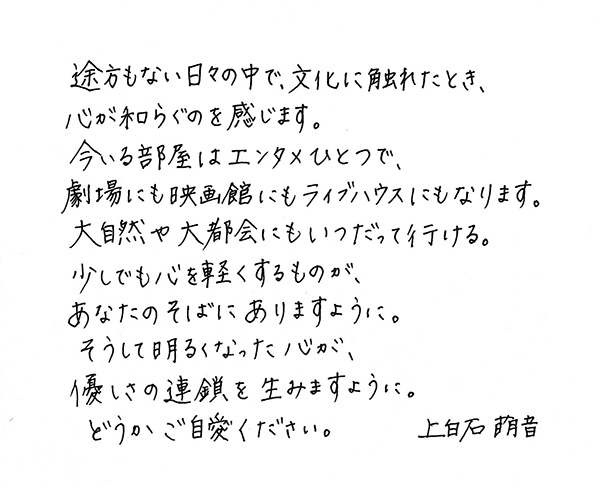 途方もない日々の中で、文化に触れたとき、
心が和らぐのを感じます。
今いる部屋はエンタメひとつで、
劇場にも映画館にもライブハウスにもなります。
大自然や大都会にもいつだって行ける。
少しでも心を軽くするものが、
あなたのそばにありますように。
そうして明るくなった心が、
優しさの連鎖を生みますように。
どうかご自愛ください。 上白石萌音